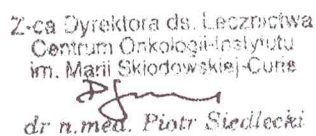 Z-ca Dyrektora ds. Lecznictwa
Centrum Onkologii-Instytutu
im. Marii Skłodowskiej-Curie
dr n.med. Piotr Siedlecki